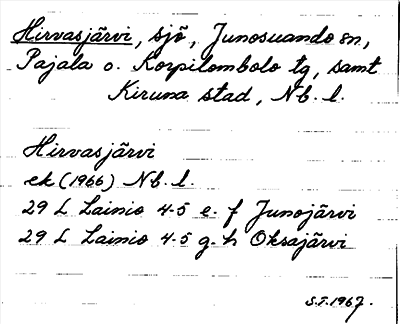 Hirvasjärvi, sjö, Junosuando sn,
Pajala o. Korpilombolo tg, samt
Kiruna stad, Nb. l.
Hirvasjärvi
ek (1966) Nb. l.
29 L Lainio 4-5 e-f Junojärvi
29 L Lainio 4-5 g-h Oksajärvi
S.F. 1967.